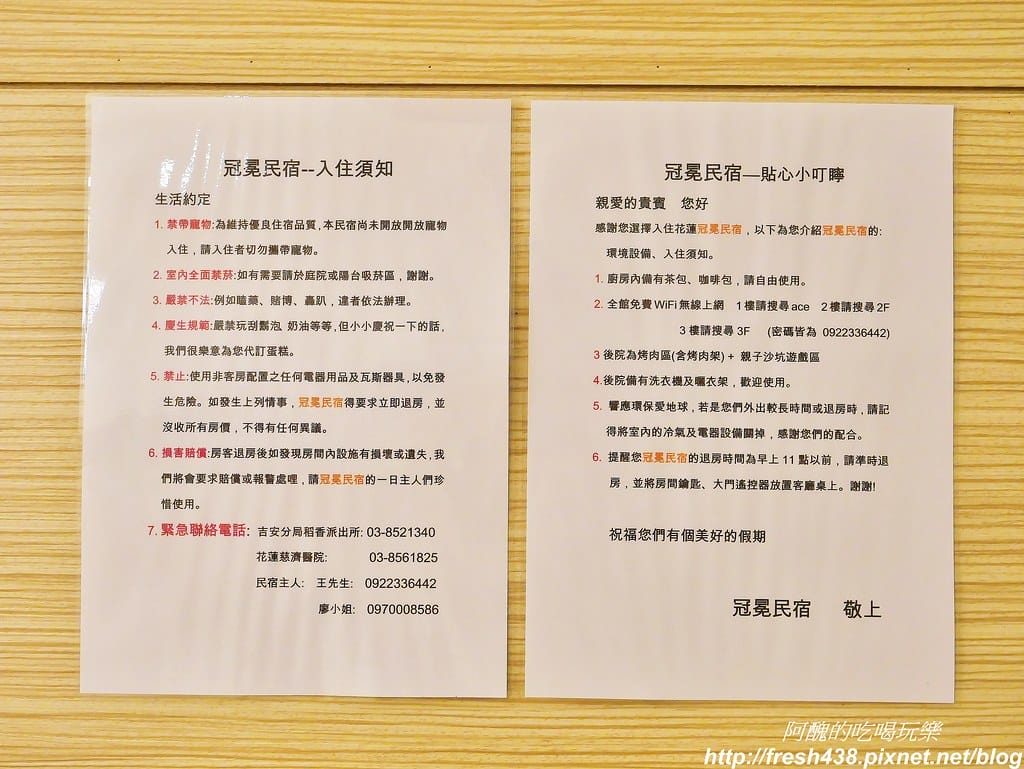 冠冕民宿--入住須知
生活約定
1. 禁帶寵物:為維持優良住宿品質,本民宿尚未開放開放寵物
入住，請入住者切勿攜帶寵物。
2. 室內全面禁菸:如有需要請於庭院或陽台吸菸區，謝謝。
3. 嚴禁不法:例如瞌藥、賭博、轟趴，違者依法辦理。
4. 慶生規範:嚴禁玩刮鬍泡、奶油等等,但小小慶祝一下的話,
我們很樂意為您代訂蛋糕。
5. 禁止:使用非客房配置之任何電器用品及瓦斯器具,以免發
生危險。如發生上列情事，冠冕民宿得要求立即退房，並
沒收所有房價，不得有任何異議。
6. 損害賠償:房客退房後如發現房間內設施有損壞或遺失,我
們將會要求賠償或報警處哩，請冠冕民宿的一日主人們珍
惜使用。
7. 緊急聯絡電話: 吉安分局稻香派出所: 03-8521340
花蓮慈濟醫院: 03-8561825
民宿主人: 王先生: 0922336442
廖小姐: 0970008586
冠冕民宿—貼心小叮嚀
親愛的貴賓 您好
感謝您選擇入住花蓮冠冕民宿，以下為您介紹冠冕民宿的:
環境設備、入住須知。
1. 廚房內備有茶包、咖啡包，請自由使用。
2. 全館免費WiFi無線上網 1樓請搜尋ace 2樓請搜尋2F
3樓請搜尋 3F (密碼皆為 0922336442)
3 後院為烤肉區(含烤肉架) + 親子沙坑遊戲區
4.後院備有洗衣機及曬衣架，歡迎使用。
5. 響應環保愛地球，若是您們外出較長時間或退房時，請記
得將室內的冷氣及電器設備關掉，感謝您們的配合。
6. 提醒您冠冕民宿的退房時間為早上 11 點以前，請準時退
房，並將房間鑰匙、大門遙控器放置客廳桌上。謝謝!
祝福您們有個美好的假期
冠冕民宿 敬上
阿醜的吃喝玩樂
http://fresh438.pixnet.net/blog